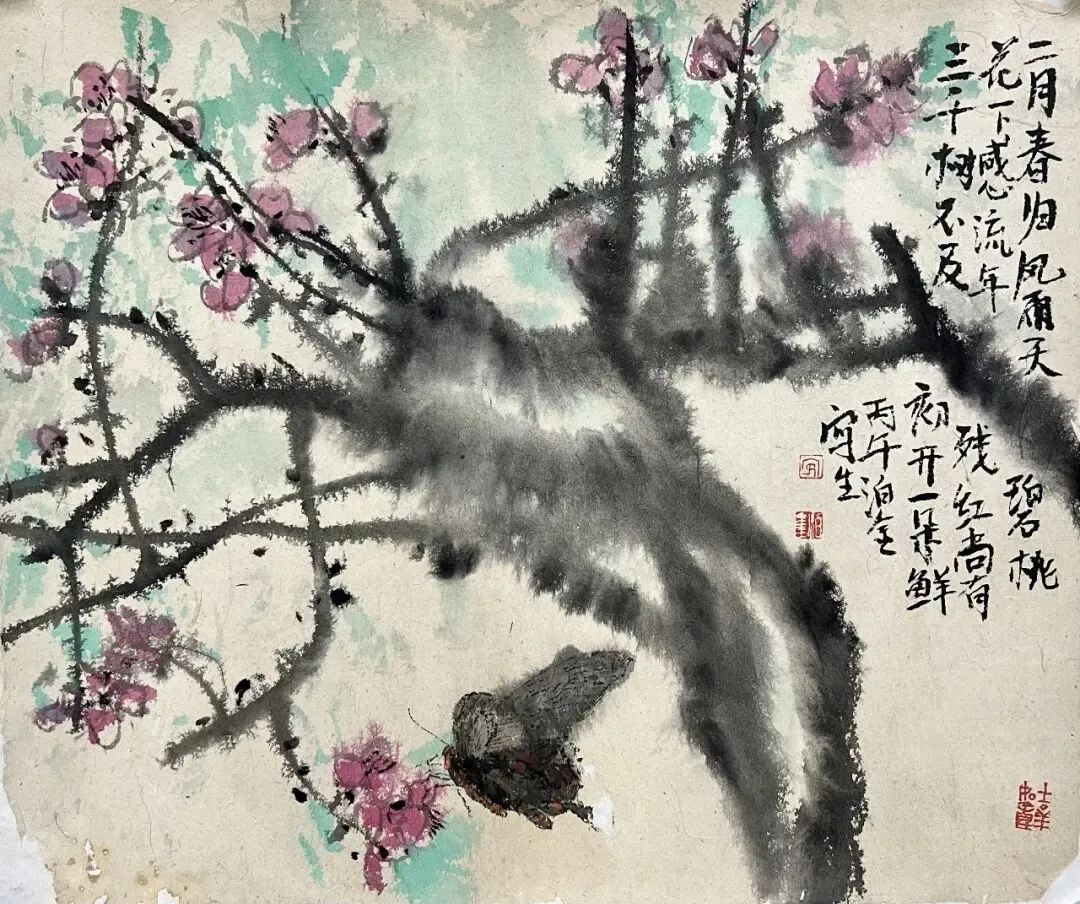 二月春归风雨天碧桃
花下感流年残红尚有
三千树不及初开一朵鲜
丙午泊
写生